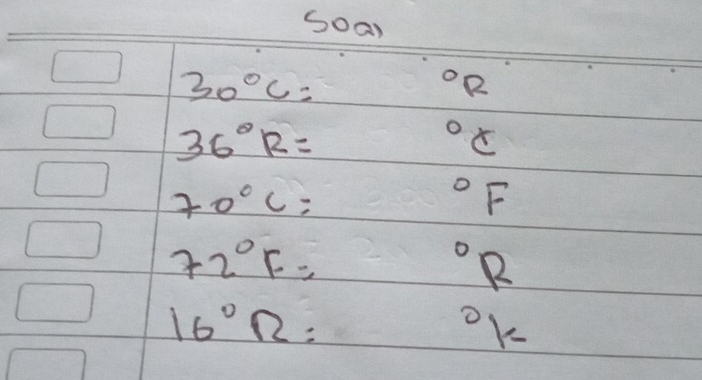 Soal
30°C= °R
36°R= °C
70°C= °F
72°F= °R
16°R= °K